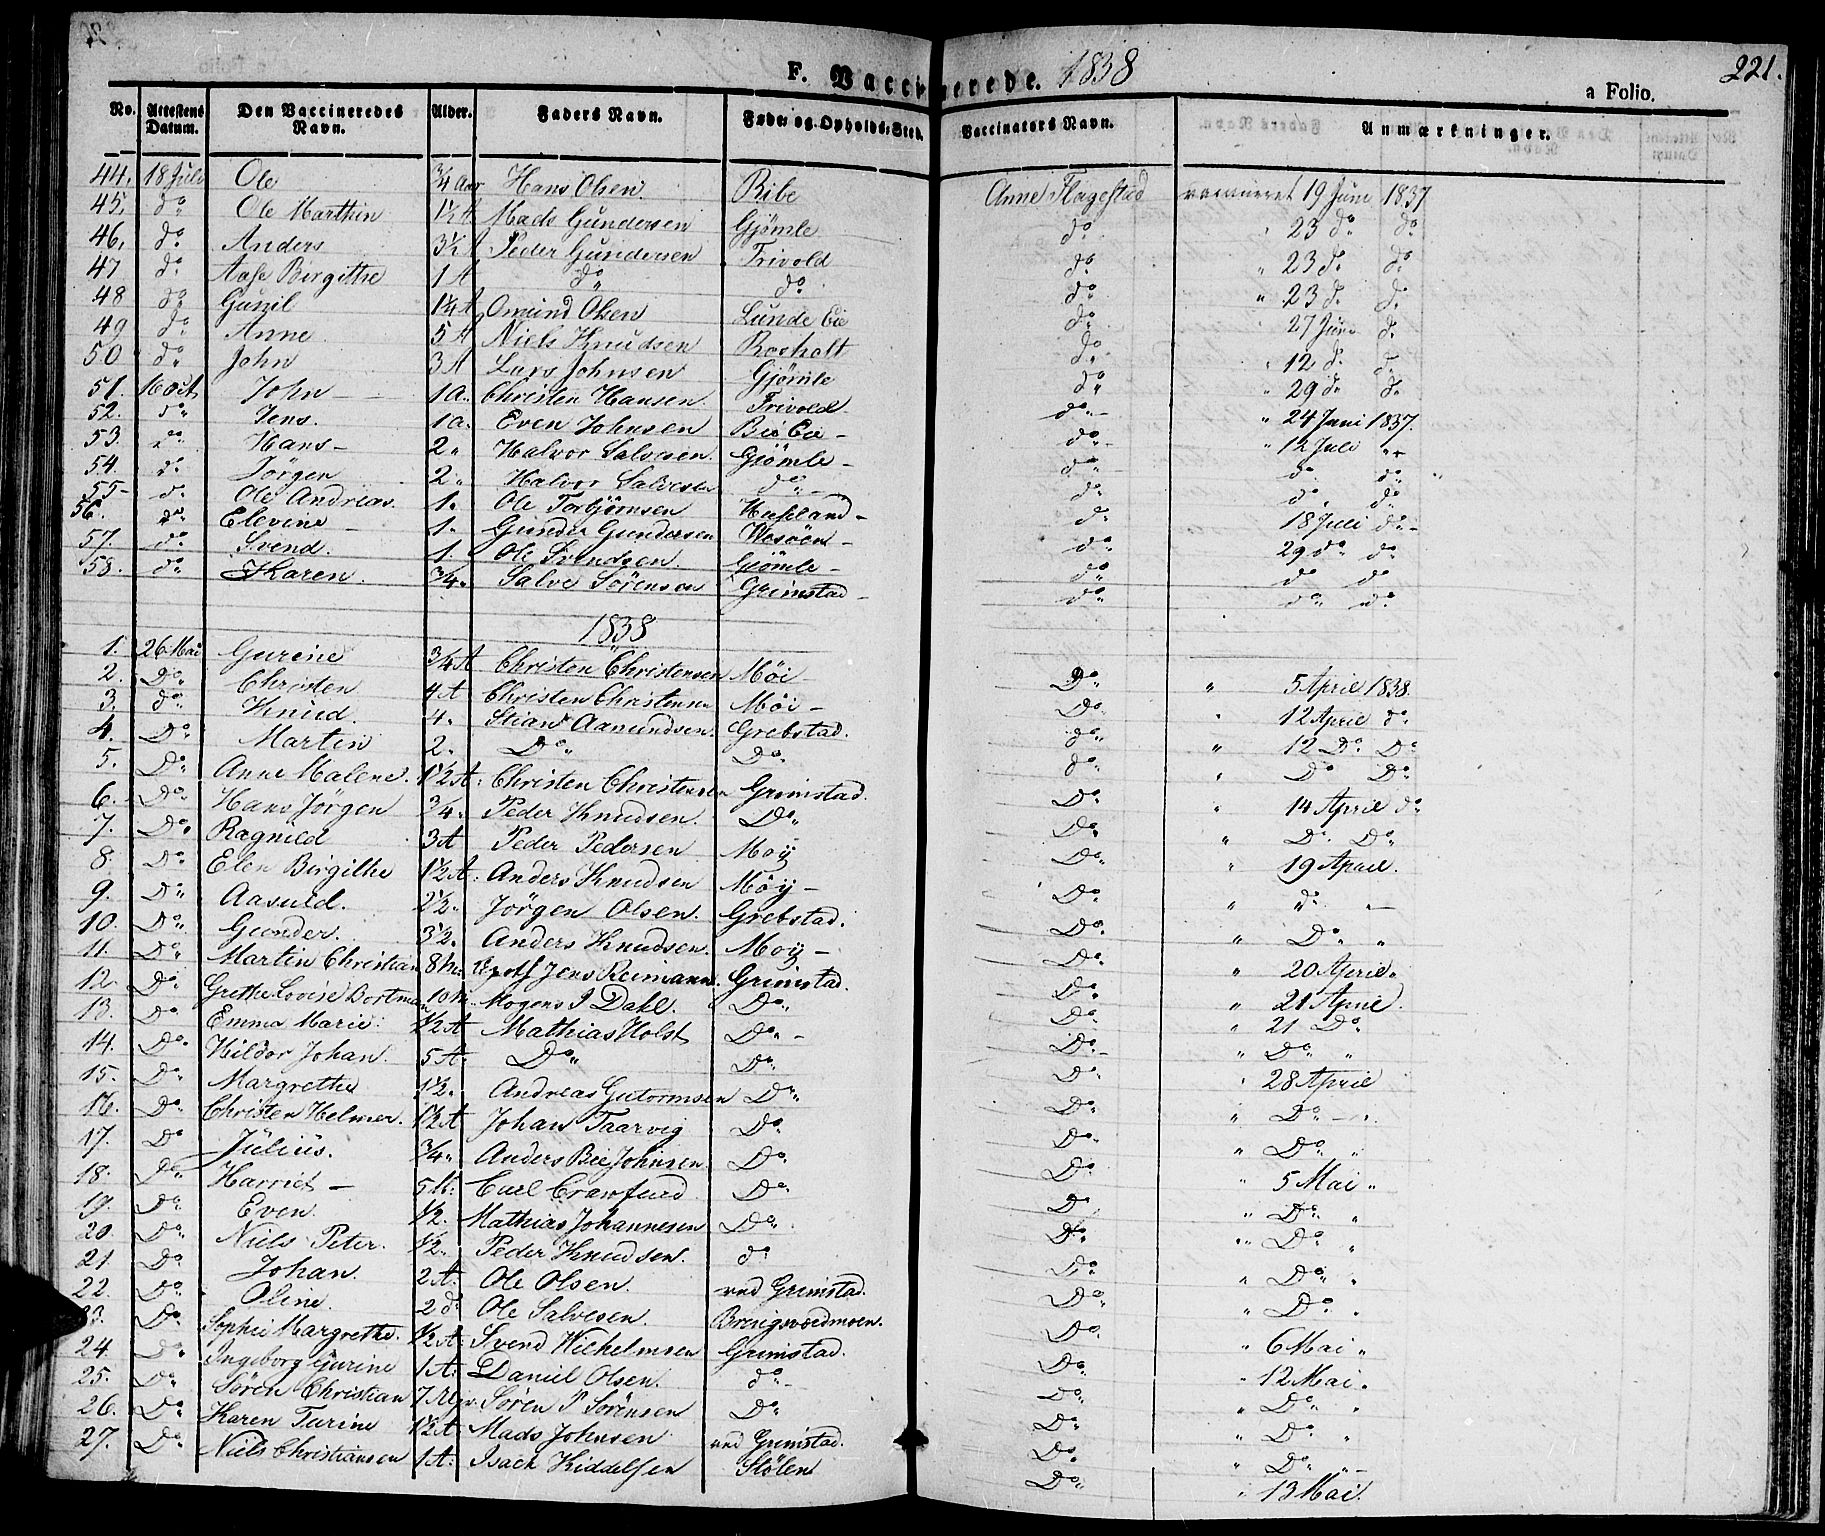 221.
F. Vaccinerede. 1838
a Folio.
No. Attestens Datum. Den Vaccineredes Navn. Alder. Faders Navn. Føde- og Opholds-Sted. Vaccinators Navn. Anmærkninger.
44. 18 Juli Ole 3/4 Aar Hans Olsen. Ribe Anne Flagestad vaccineret 19 Juni 1837
45. do Ole Marthin 1 1/2 A Mads Gundersen Gjömle do " 23 do do
46. do Anders 3 1/2 A Peder Gundersen Trivold do " 23 do do
47 do Aase Birgithe 1 A do do do " 23 d. d.
48 do Gunil 1 1/4 A Omund Olsen Lunde Eie do 27 Juni d.
49 do Anne 5 A Niels Knudsen Rosholt do " 12 d. d.
50 do John 3 A Lars Johnsen Gjömle do " 29 d. d.
51. 16 Oct John 1 a. Christen Hansen. Trivold do " 24 Juni 1837.
52. do Jens. 1 a. Even Johnsen Bie Eie do " 12 Juli "
53. do Hans 2 " Halvor Salvesen Gjömle do d. do "
54. do Jörgen 2 " Halvor Salvesen do do do do
55 do Ole Andreas. 1. Ole Torbjörnsen Hufsland do 18 Juli do
56. do Elevine 1. Gunder Gundersen Vesöen do 29 do do
57. do Svend. 1. Ole Svendsen. Gjömle do do do
58. do Karen. 3/4. Salve Sörensen Grimstad do do do
1838
1. 26 Mai Gurine 3/4 A Christen Christensen Möi Do " 5 April 1838.
2. Do Christen 4 A Christen Christensen Möi Do " 12 April do
3. do Knud. 4. Stian Aamundsen. Grebstad. do " 12 Do Do
4. Do Martin 2. Do Do do " Do Do
5. Do Anne Malene. 1 1/2 A. Christen Christensen Grimstad. Do " 14 April do
6. Do Hans Jörgen 3/4. Peder Knudsen. Do Do " Do Do
7. Do Ragnild 3 A Peder Pedersen Moy Do " 19 April.
8. Do Elen Birgithe 1 1/2 A. Anders Knudsen Möy Do " do "
9. Do Aasuld. 2 1/2. Jörgen Olsen. Grebstad. Do " Do "
10. Do Gunder. 3 1/2. Anders Knudsen. Moy Do " 20 April "
11. Do Martin Christian 8 M. Jens Reimann. Grimstad. Do " 21 April.
12. Do Grethe Lovise Bortman 10 M. Mogens J Dahl. Do Do " 21 Do
13. Do Emma Marie. 1/2 A Mathias Holst Do Do " Do "
14. Do Hildor Johan. 5 A. Do Do Do " 28 April
15. Do Margrethe 1 1/2. Andreas Gutormsen Do Do " Do "
16. Do Christen Helmer. 1 1/2 A Johan Taarvig Do Do " Do "
17. Do Julius. 3/4. Anders Bie Johnsen. Do Do " 5 Mai "
18. Do Harriet 5 M. Carl Crawfurd Do Do " Do "
19. Do Even. 1/2. Mathias Johannesen Do Do " Do "
20. Do Niels Peter. 1/2. Peder Knudsen. do Do " Do "
21. Do Johan. 2 A. Ole Olsen. ved Grimstad. Do " Do "
22. Do Oline. 2 do Ole Salvesen. Bringsværdmoen. Do " 6 Mai "
23. Do Sophie Margrethe. 1/2 A. Svend Wilhelmsen Grimstad. Do " 12 Mai.
24. Do Ingeborg Gurine 1 A. Daniel Olsen. do Do " Do "
25. Do Sören Christian 7 Sören P Sörensen Do Do " Do "
26. Do Karen Turine 1 1/2 A Mads Johnsen ved Grimstad. Do " Do "
27. Do Niels Christiansen 1 A. Isach Kiddelsen Stölen Do " 13 Mai.